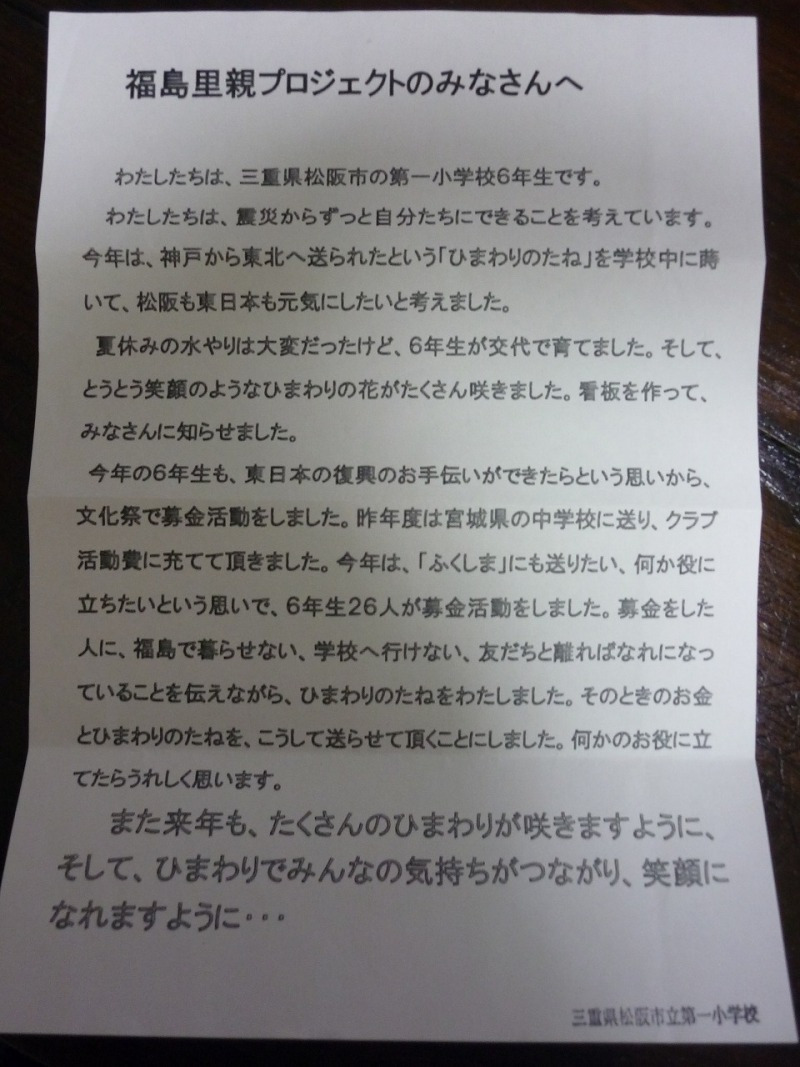 福島里親プロジェクトのみなさんへ
わたしたちは、三重県松阪市の第一小学校6年生です。
わたしたちは、震災からずっと自分たちにできることを考えています。
今年は、神戸から東北へ送られたという「ひまわりのたね」を学校中に蒔
いて、松阪も東日本も元気にしたいと考えました。
夏休みの水やりは大変だったけど、6年生が交代で育てました。そして、
とうとう笑顔のようなひまわりの花がたくさん咲きました。看板を作って、
みなさんに知らせました。
今年の6年生も、東日本の復興のお手伝いができたらという思いから、
文化祭で募金活動をしました。昨年度は宮城県の中学校に送り、クラブ
活動費に充てて頂きました。今年は、「ふくしま」にも送りたい、何か役に
立ちたいという思いで、6年生26人が募金活動をしました。募金をした
人に、福島で暮らせない、学校へ行けない、友だちと離ればなれになっ
ていることを伝えながら、ひまわりのたねをわたしました。そのときのお金
とひまわりのたねを、こうして送らせて頂くことにしました。何かのお役に立
てたらうれしく思います。
また来年も、たくさんのひまわりが咲きますように、
そして、ひまわりでみんなの気持ちがつながり、笑顔に
なれますように・・・
三重県松阪市立第一小学校